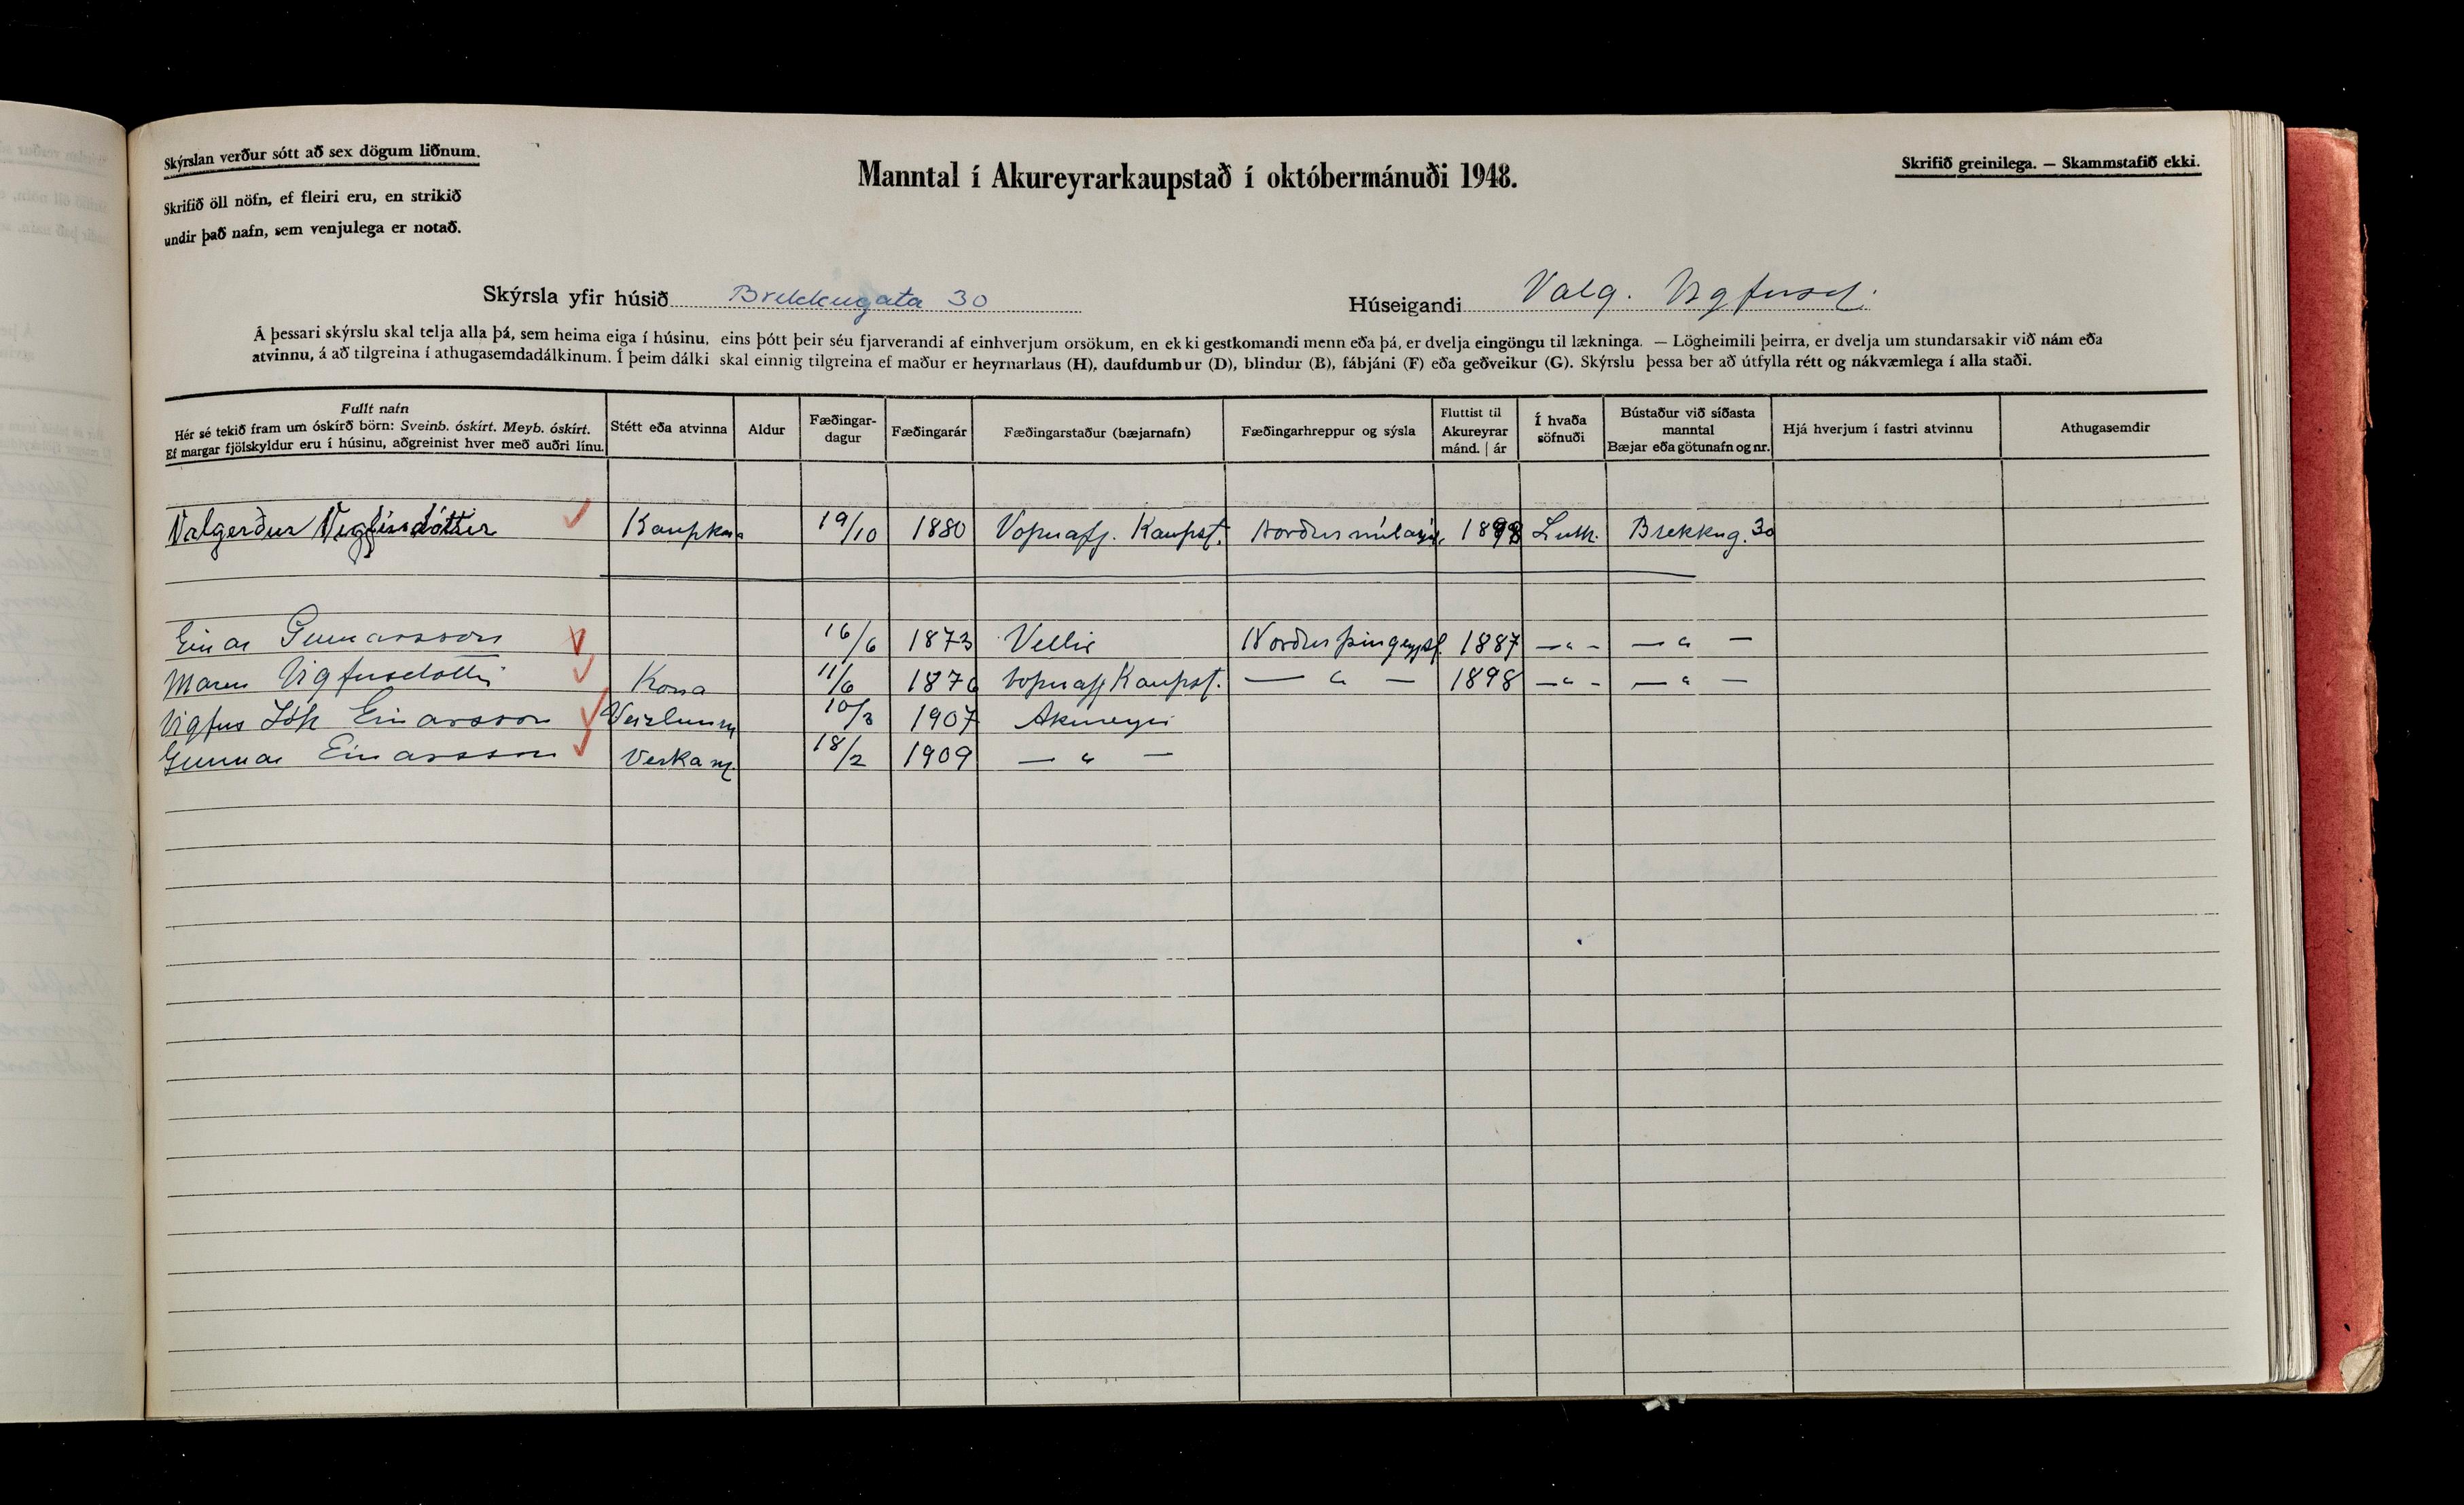 Skýrslan verður sótt að sex dögum liðnum.
Skrifið öll nöfn, ef fleiri eru, en strikið
undir það nafn, sem venjulega er notað.
Manntal í Akureyrarkaupstað í októbermánuði 1948.
Skrifið greinilega. — Skammstafið ekki.
Skýrsla yfir húsið Brekkugata 30
Húseigandi Valg. Vigfúsd.
Á þessari skýrslu skal telja alla þá, sem heima eiga í húsinu, eins þótt þeir séu fjarverandi af einhverjum orsökum, en ekki gestkomandi menn eða þá, er dvelja eingöngu til lækninga. — Lögheimili þeirra, er dvelja um stundarsakir við nám eða
atvinnu, á að tilgreina í athugasemdadálkinum. Í þeim dálki skal einnig tilgreina ef maður er heyrnarlaus (H), daufdumbur (D), blindur (B), fábjáni (F) eða geðveikur (G). Skýrslu þessa ber að útfylla rétt og nákvæmlega í alla staði.
Fullt nafn
Hér sé tekið fram um óskírð börn: Sveinb. óskírt. Meyb. óskírt.
Ef margar fjölskyldur eru í húsinu, aðgreinist hver með auðri línu.
Stétt eða atvinna
Aldur
Fæðingar-
dagur
Fæðingarár
Fæðingarstaður (bæjarnafn)
Fæðingarhreppur og sýsla
Fluttist til
Akureyrar
mánd. | ár
Í hvaða
söfnuði
Bústaður við síðasta
manntal
Bæjar eða götunafn og nr.
Hjá hverjum í fastri atvinnu
Athugasemdir
Valgerður Vigfúsdóttir Kaupkona 19/10 1880 Vopnafj. Kaupst. Norðurmúlasýsl. 1898 Luth. Brekkug. 30
Einar Gunnarsson 16/6 1873 Vellir Norður þingeyjs. 1887 — " — — " —
Maren Vigfusdottir Kona 11/6 1876 Vopnafj Kaupst. — " — 1898 — " — — " —
Vigfus Jóh Einarsson Verzlunm 10/3 1907 Akureyri
Gunnar Einarsson Verkam. 18/2 1909 — " —